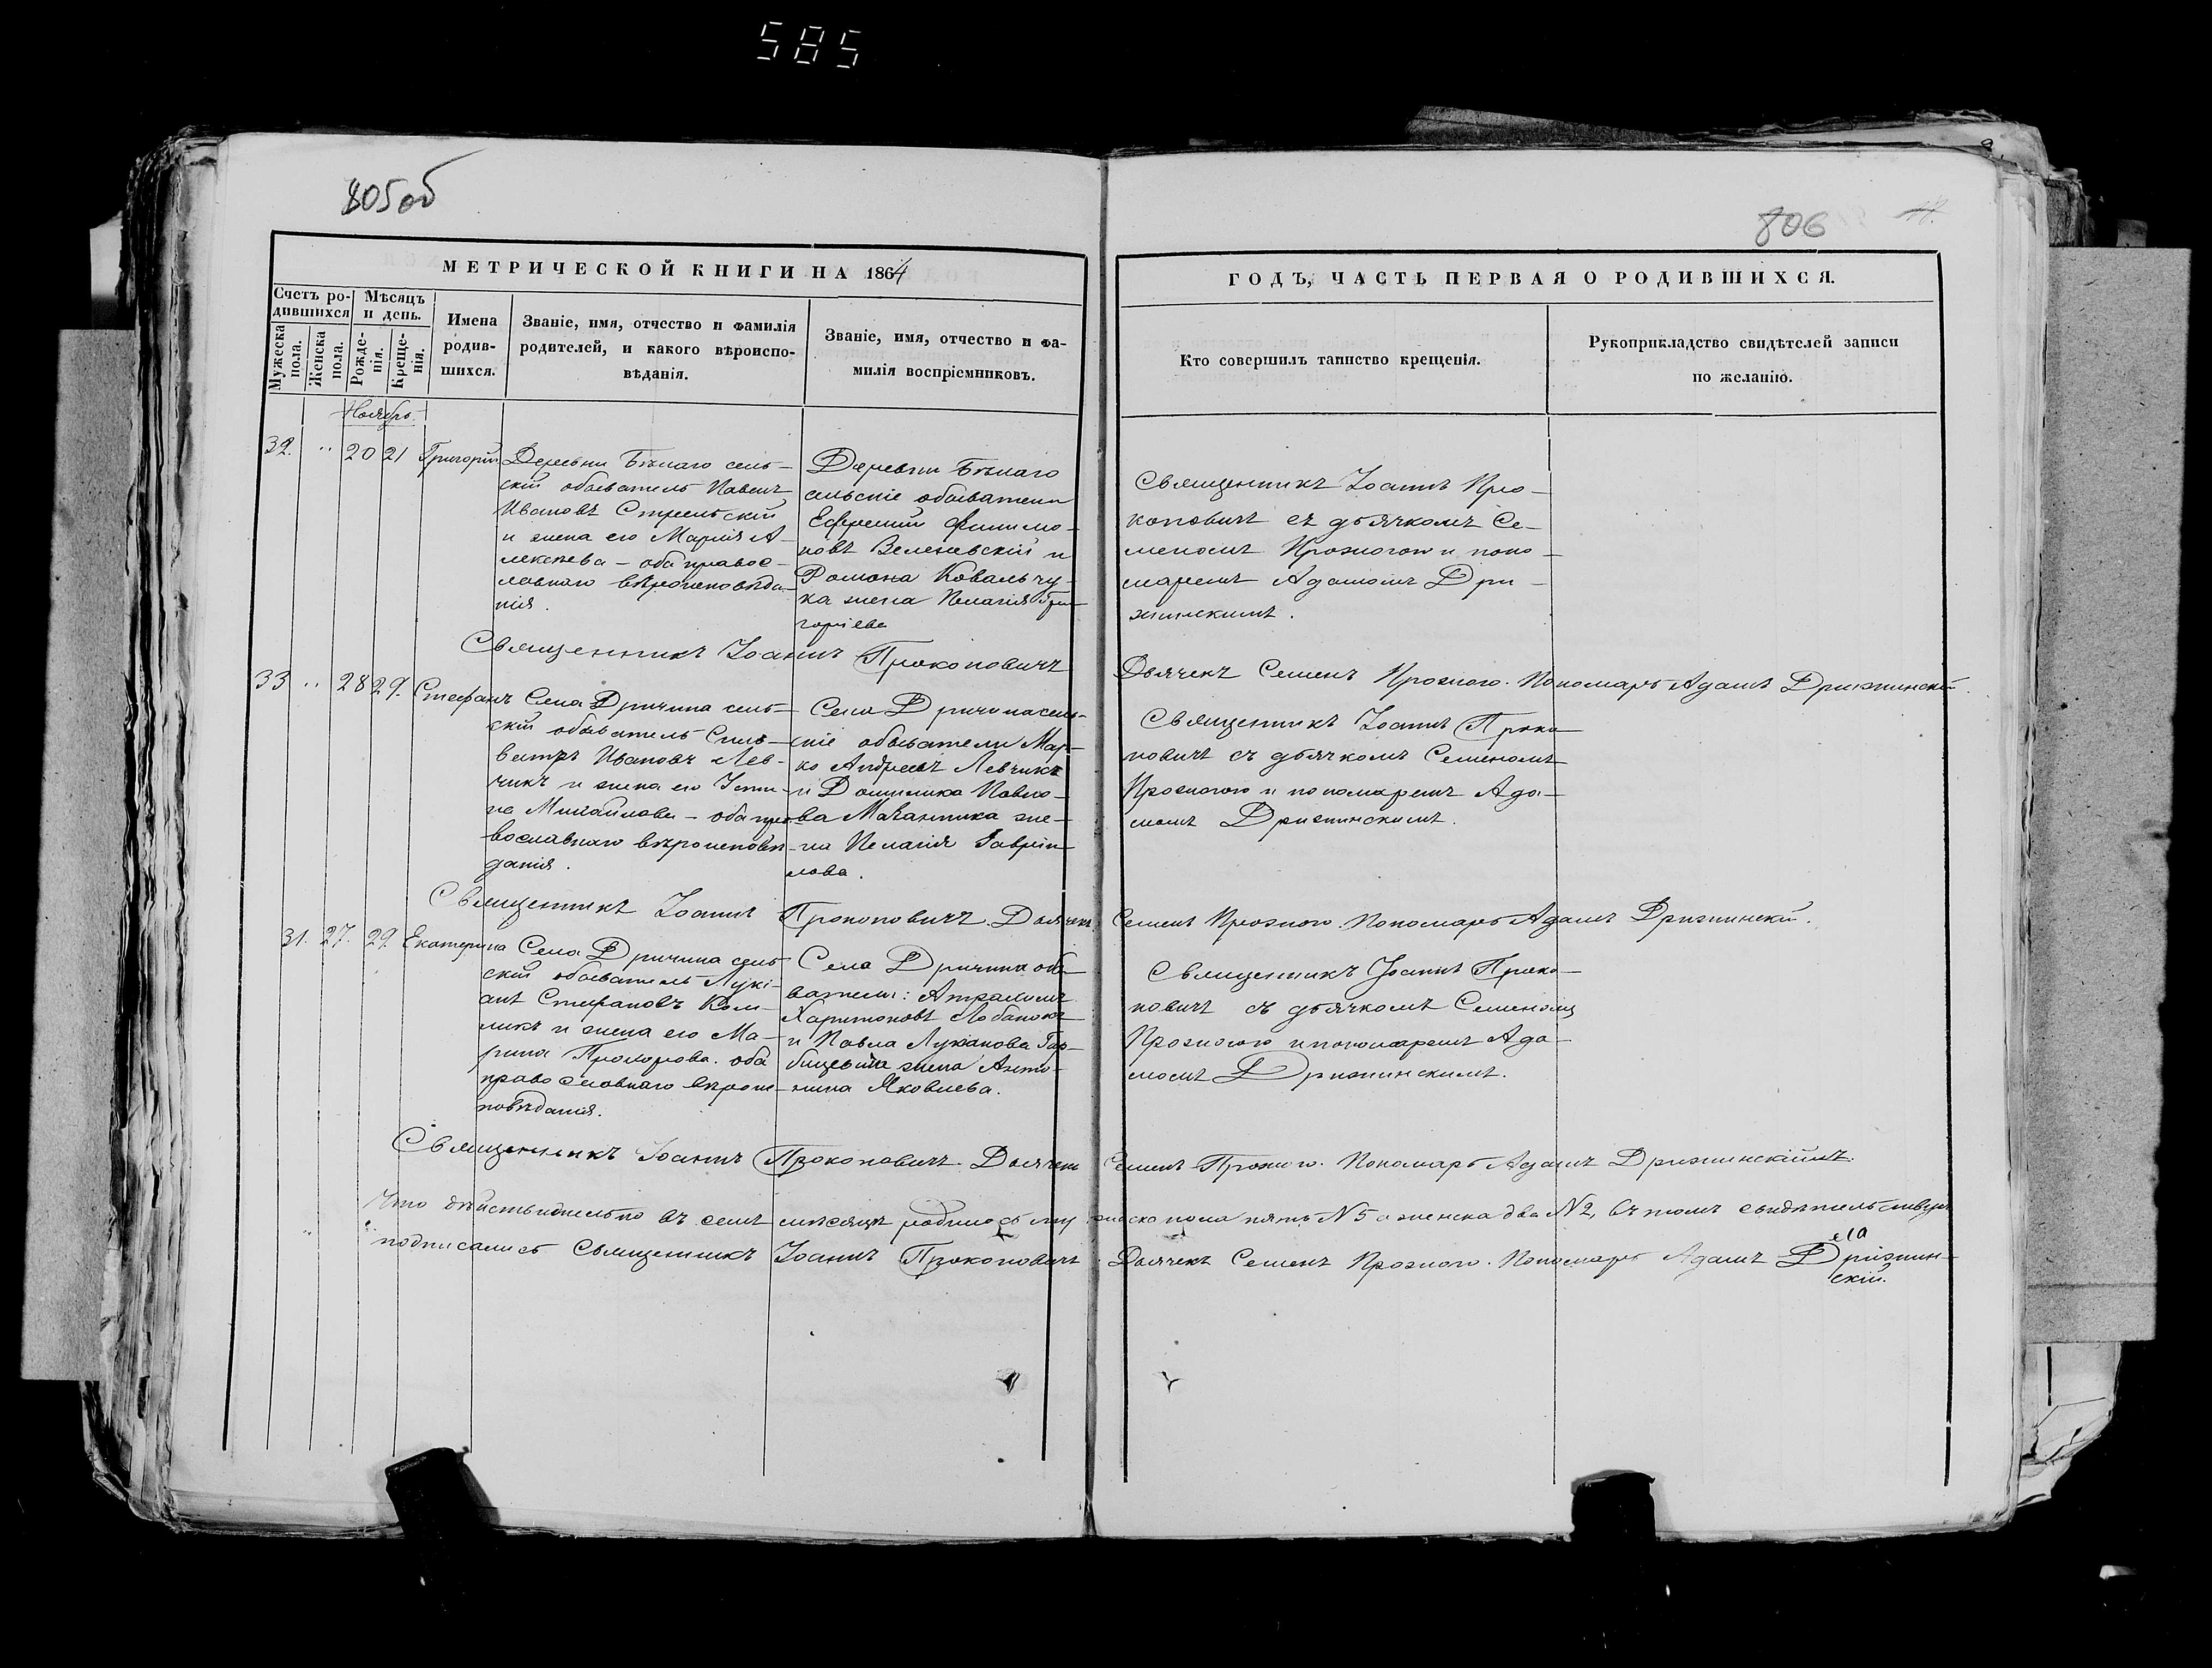 585
805об
806
МЕТРИЧЕСКОЙ КНИГИ НА 1864
ГОДЪ, ЧАСТЬ ПЕРВАЯ О РОДИВШИХСЯ.
Счетъ ро-
дившихся
Мужеска
пола.
Женска
пола.
Мѣсяцъ
и день.
Рожде-
нія.
Креще-
нія.
Имена
родив-
шихся.
Званіе, имя, отчество и фамилія
родителей, и какого вѣроиспо-
вѣданія.
Званіе, имя, отчество и фа-
милія воспріемниковъ.
Кто совершилъ таинство крещенія.
Рукоприкладство свидѣтелей записи
по желанію.
Ноябрь.
32. " 20 21 Григорій
Деревни Бѣлаго сель-
скій обыватель Павелъ
Ивановъ Стрельскій
и жена его Марія А-
лексѣева – оба правос-
лавнаго вѣроисповѣда-
нія.
Деревни Бѣлаго
сельскіе обыватели
Ефремій Филимо-
новъ Велечевскій и
Романа Ковальчу-
ка жена Пелагія Гри-
горіева
Священникъ Іоаннъ Про-
коповичъ съ дьячкомъ Се-
меномъ Прожогою и поно-
маремъ Адамомъ Дри-
жинскимъ.
Священникъ Іоаннъ Прокоповичъ
Дьячекъ Семенъ Прожого. Пономарь Адамъ Дрижинскій.
33 " 28 29. Стефанъ
Села Дричина сель-
скій обыватель Силь-
вестръ Ивановъ Лев-
чикъ и жена его Усти-
на Михайлова – оба пра-
вославнаго вѣроисповѣ-
данія.
Села Дричина сель-
скіе обыватели Мар-
ко Андреевъ Левчикъ
и Доминика Павло-
ва жe-
на Пелагія Гаврии-
лова.
Священникъ Іоаннъ Проко-
повичъ съ дьячкомъ Семеномъ
Прожогою и пономаремъ Ада-
момъ Дрижинскимъ.
Священникъ Іоаннъ Прокоповичъ. Дьячекъ Семенъ Прожого. Пономарь Адамъ Дрижинскій.
31. 27. 29 Екатерина
Села Дричина сель-
скій обыватель Лукі-
анъ Стефановъ
и жена его Ма-
рина Прохорова. оба
православнаго вѣроис-
повѣданія.
Села Дричина обы-
ватели:
Харитоновъ Лобановъ
и Павла Лукянова
жена Анто-
нина Яковлева.
Священникъ Іоаннъ Проко-
повичъ съ дьячкомъ Семеномъ
Прожогою и пономаремъ Ада-
момъ Дрижинскимъ.
Священникъ Іоаннъ Прокоповичъ. Дьячекъ Семенъ Прожого. Пономарь Адамъ
Что дѣйствительно въ семъ мѣсяцѣ родилось мужеска пола пять N 5 а женска два N 2, въ томъ свидѣтельствуя
подписались Священникъ Іоаннъ Прокоповичъ. Дьячекъ Семенъ Прожого. Пономарь Адамъ Дрижин-
скій.